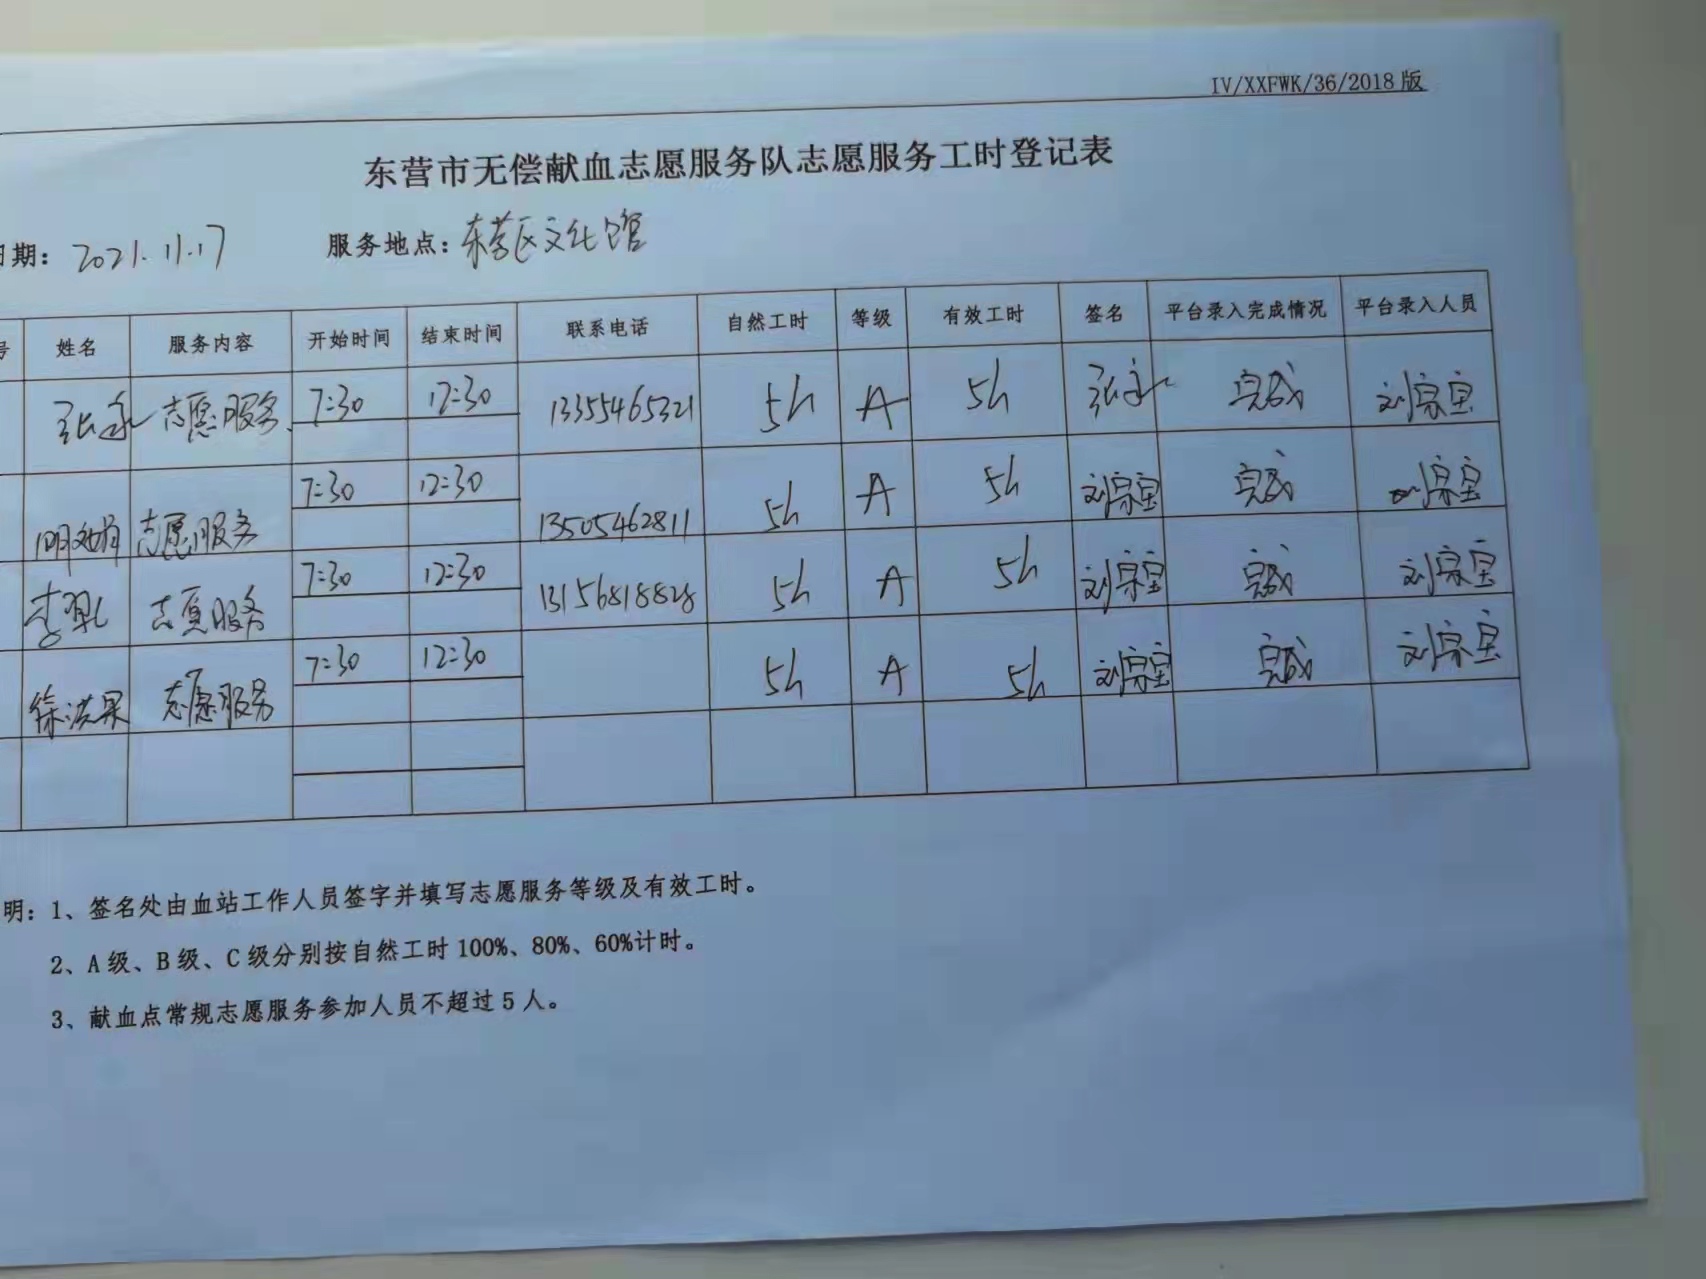 IV/XXFWK/36/2018版
东营市无偿献血志愿服务队志愿服务工时登记表
日期：2021.11.17 服务地点：东营区文化馆
号 姓名 服务内容 开始时间 结束时间 联系电话 自然工时 等级 有效工时 签名 平台录入完成情况 平台录入人员
张永 志愿服务 7:30 12:30 13355465321 5h A 5h 张永 完成 刘宗宝
志愿服务 7:30 12:30 13505462811 5h A 5h 刘宗宝 完成 刘宗宝
李 志愿服务 7:30 12:30 13156818828 5h A 5h 刘宗宝 完成 刘宗宝
徐洪果 志愿服务 7:30 12:30 5h A 5h 刘宗宝 完成 刘宗宝
明：1、签名处由血站工作人员签字并填写志愿服务等级及有效工时。
2、A级、B级、C级分别按自然工时100%、80%、60%计时。
3、献血点常规志愿服务参加人员不超过5人。